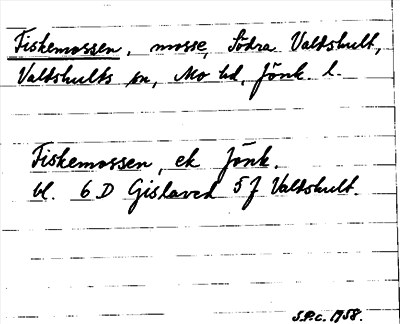 Fiskemossen, mosse, Södra Valdshult,
Valdshults sn, Mo hd, Jönk. l.
Fiskemossen, ek Jönk.
bl. 6 D Gislaved 5 f Valdshult.
S.P.c. 1958.